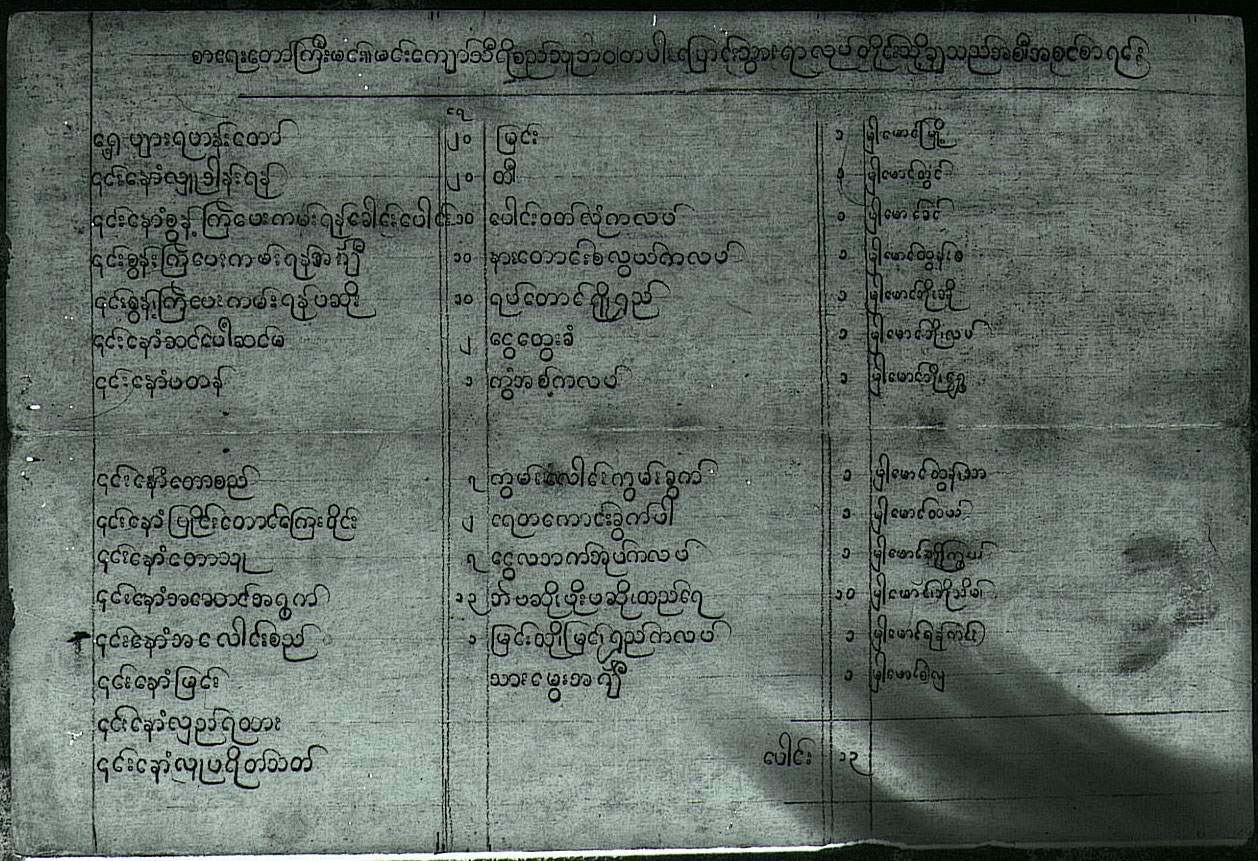 စာရေးတော်ကြီးမင်းမင်းကျော်သီရိစည်သူဘဝတပါးပြောင်းသွားရာလုပ် သည်အစီအစဉ်စာရင်း
ရှေ့ပျားရဟန်းတော် ၂၀ မြင်း ၁ မြှီးမောင်မြို့
၎င်းနောံလှူဒါန်းရန် ၂၀ ထီး ၁ မြှီးမောင်တွင်
၎င်းနောံစွန့်ကြဲပေးကမ်းရန်ခေါင်းပေါင်း ၁၀ ပေါင်းဝတ်လုံကလပ် ၁ မြှီးမောင်ခင်
၎င်းစွန့်ကြဲပေးကမ်းရန်အင်္ကျီ ၁၀ နားတောင်းစလွယ်ကလပ် ၁ မြှီးမောင်ထွန်းစ
၎င်းစွန့်ကြဲပေးကမ်းရန်ပဆိုး ၁၀ ရပ်တောင်ရှိုရှည် ၁ မြှီးမောင်ဘိုးအို
၎င်းနောံဆင်ပေါ်ဆင်မ ၂ ငွေထွေးခံ ၁ မြှီးမောင်ဘိုးလှပ်
၎င်းနောံပတန် ၁ ကွံအစ့်ကလပ် ၁ မြှီးမောင်ဘိုးရွှေ
၎င်းနောံတောစည် ၇ ကွမ်းလောင်းကွမ်းခွက် ၁ မြှီးမောင်ထွန်းအောဘ
၎င်းနောံပြိုင်းတောင်ကြေးဝိုင်း ၂ ရေတကောင်းခွက်ပါ ၁ မြှီးမောင်ဝယ်
၎င်းနောံတောသူ ၇ ငွေလဘက်အုပ်ကလပ် ၁ မြှီးမောင်
၎င်းနောံအခေါင်အရွက် ၁၃ ဘီပဆိုးဖိုးပဆိုးထည်ရေ ၁၀ မြှီးမောင်ဘိုးသိမ်း
၎င်းနောံအလောင်းစည် ၁ မြင်းသို့မြင်းရှည်ကလပ် ၁ မြှီးမောင်ရန်ကင်း
၎င်းနောံမြင်း သားမွေးအင်္ကျီ ၁ မြှီးမောင်စံလှ
၎င်းနောံလှည်းရထား
၎င်းနောံလူပရိတ်သတ် ပေါင်း ၁၃